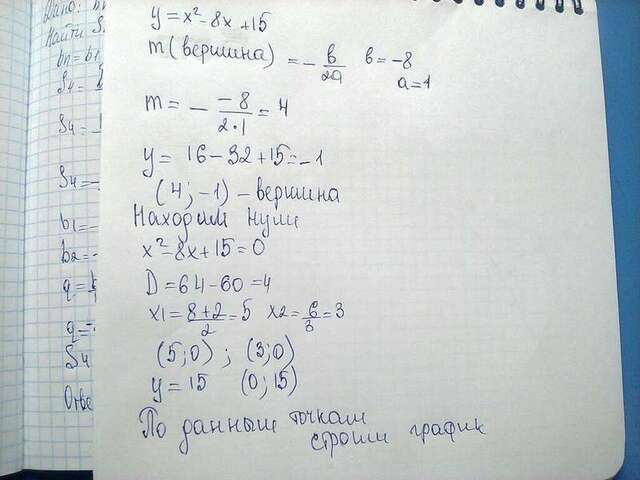 Дано: b
Найти S
bn = b1
S4 =
S4 =
S4 = -
b1 = -
b2 = -
q =
q = -
S4
Отве
y = x² - 8x + 15
m (вершина) = - в/2а в = -8
а = 1
m = - -8/2·1 = 4
y = 16 - 32 + 15 = -1
(4; -1) - вершина
Находим нули
x² - 8x + 15 = 0
D = 64 - 60 = 4
x1 = 8+2/2 = 5 x2 = 6/3 = 3
(5; 0) ; (3; 0)
y = 15 (0; 15)
По данным точкам
строим график